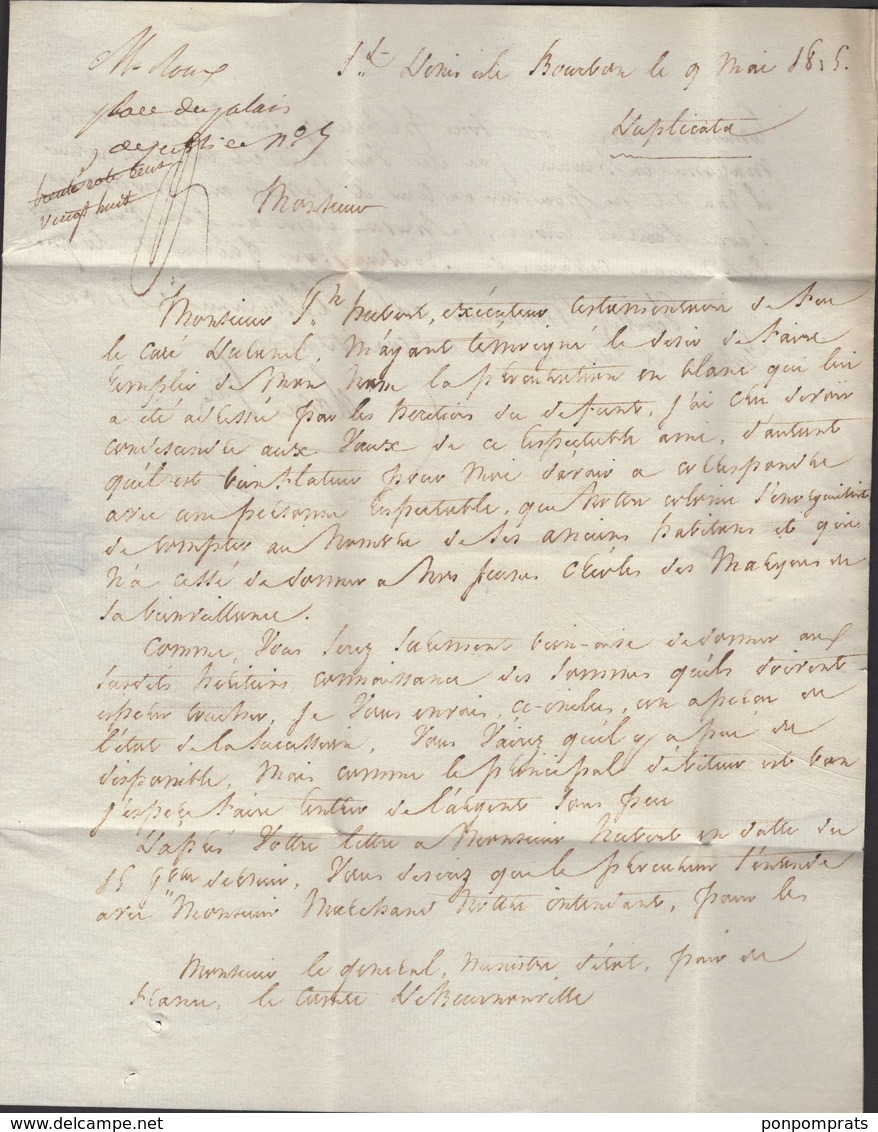 Mr Roux
place du palais
de justice no 5
vingt huit
St Denis ile Bourbon le 9 Mai 1815.
Duplicata
Monsieur
Monsieur Ph hubert, exécuteur testamentaire de feu
le curé Dubunel, M'ayant témoigné le desir de faire
remplir de Mon Nom la procuration en blanc qui lui
a été adressée par les héritiers du defunt, j'ai cru devoir
condescendre aux Vœux de ce respectable ami, d'autant
qu'il est bien flateur pour Moi d'avoir a correspondre
avec une personne respectable, que Notre colonie s'enorgueillit
de compter au Nombre de ses anciens habitans et qui
N'a cessé de donner a Nos jeunes Créoles des Marques de
sa bienveillance.
Comme Vous serez surement bien-aise de donner aux
susdits héritiers connaissance des sommes qu'ils doivent
espérer toucher, je Vous envois, ci-inclus, un apercu de
l'état de la succession, Vous Verrez qu'il y a peu de
disponible, Mais comme le principal débiteur est bon
j'espère faire rentrer de l'argent sous peu
D'après Votre lettre a Monsieur hubert en datte du
15 9bre dernier, Vous desirez que le procureur s'entende
avec Monsieur Marchand Notre intendant, pour les
Monsieur le général, Ministre d'état, pair de
France, le Comte De Beurnonville
ponpomprats